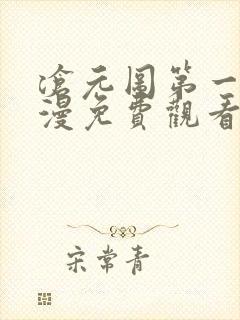 滄元圖第一
漫免費觀看
宋常青